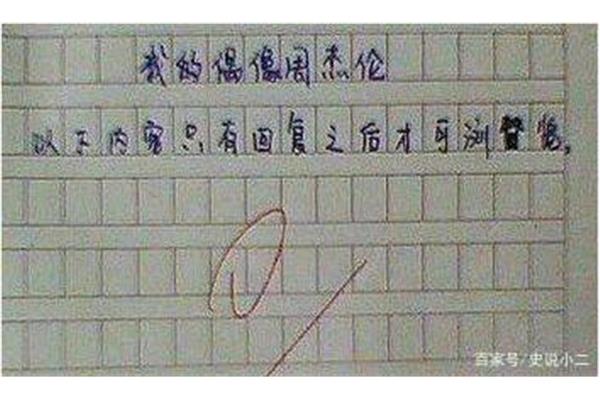 我的偶像周杰伦
以下内容只有回复之后才可浏览。
百家号/史说小二